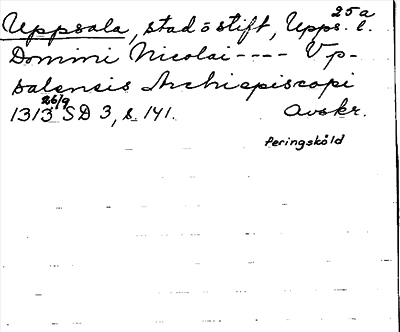 25 a
Uppsala, stad o stift, Upps. l.
Domini Nicolai ---- Vp-
salensis Archiepiscopi
1313 26/9 SD 3, s. 141. Avskr.
Peringsköld